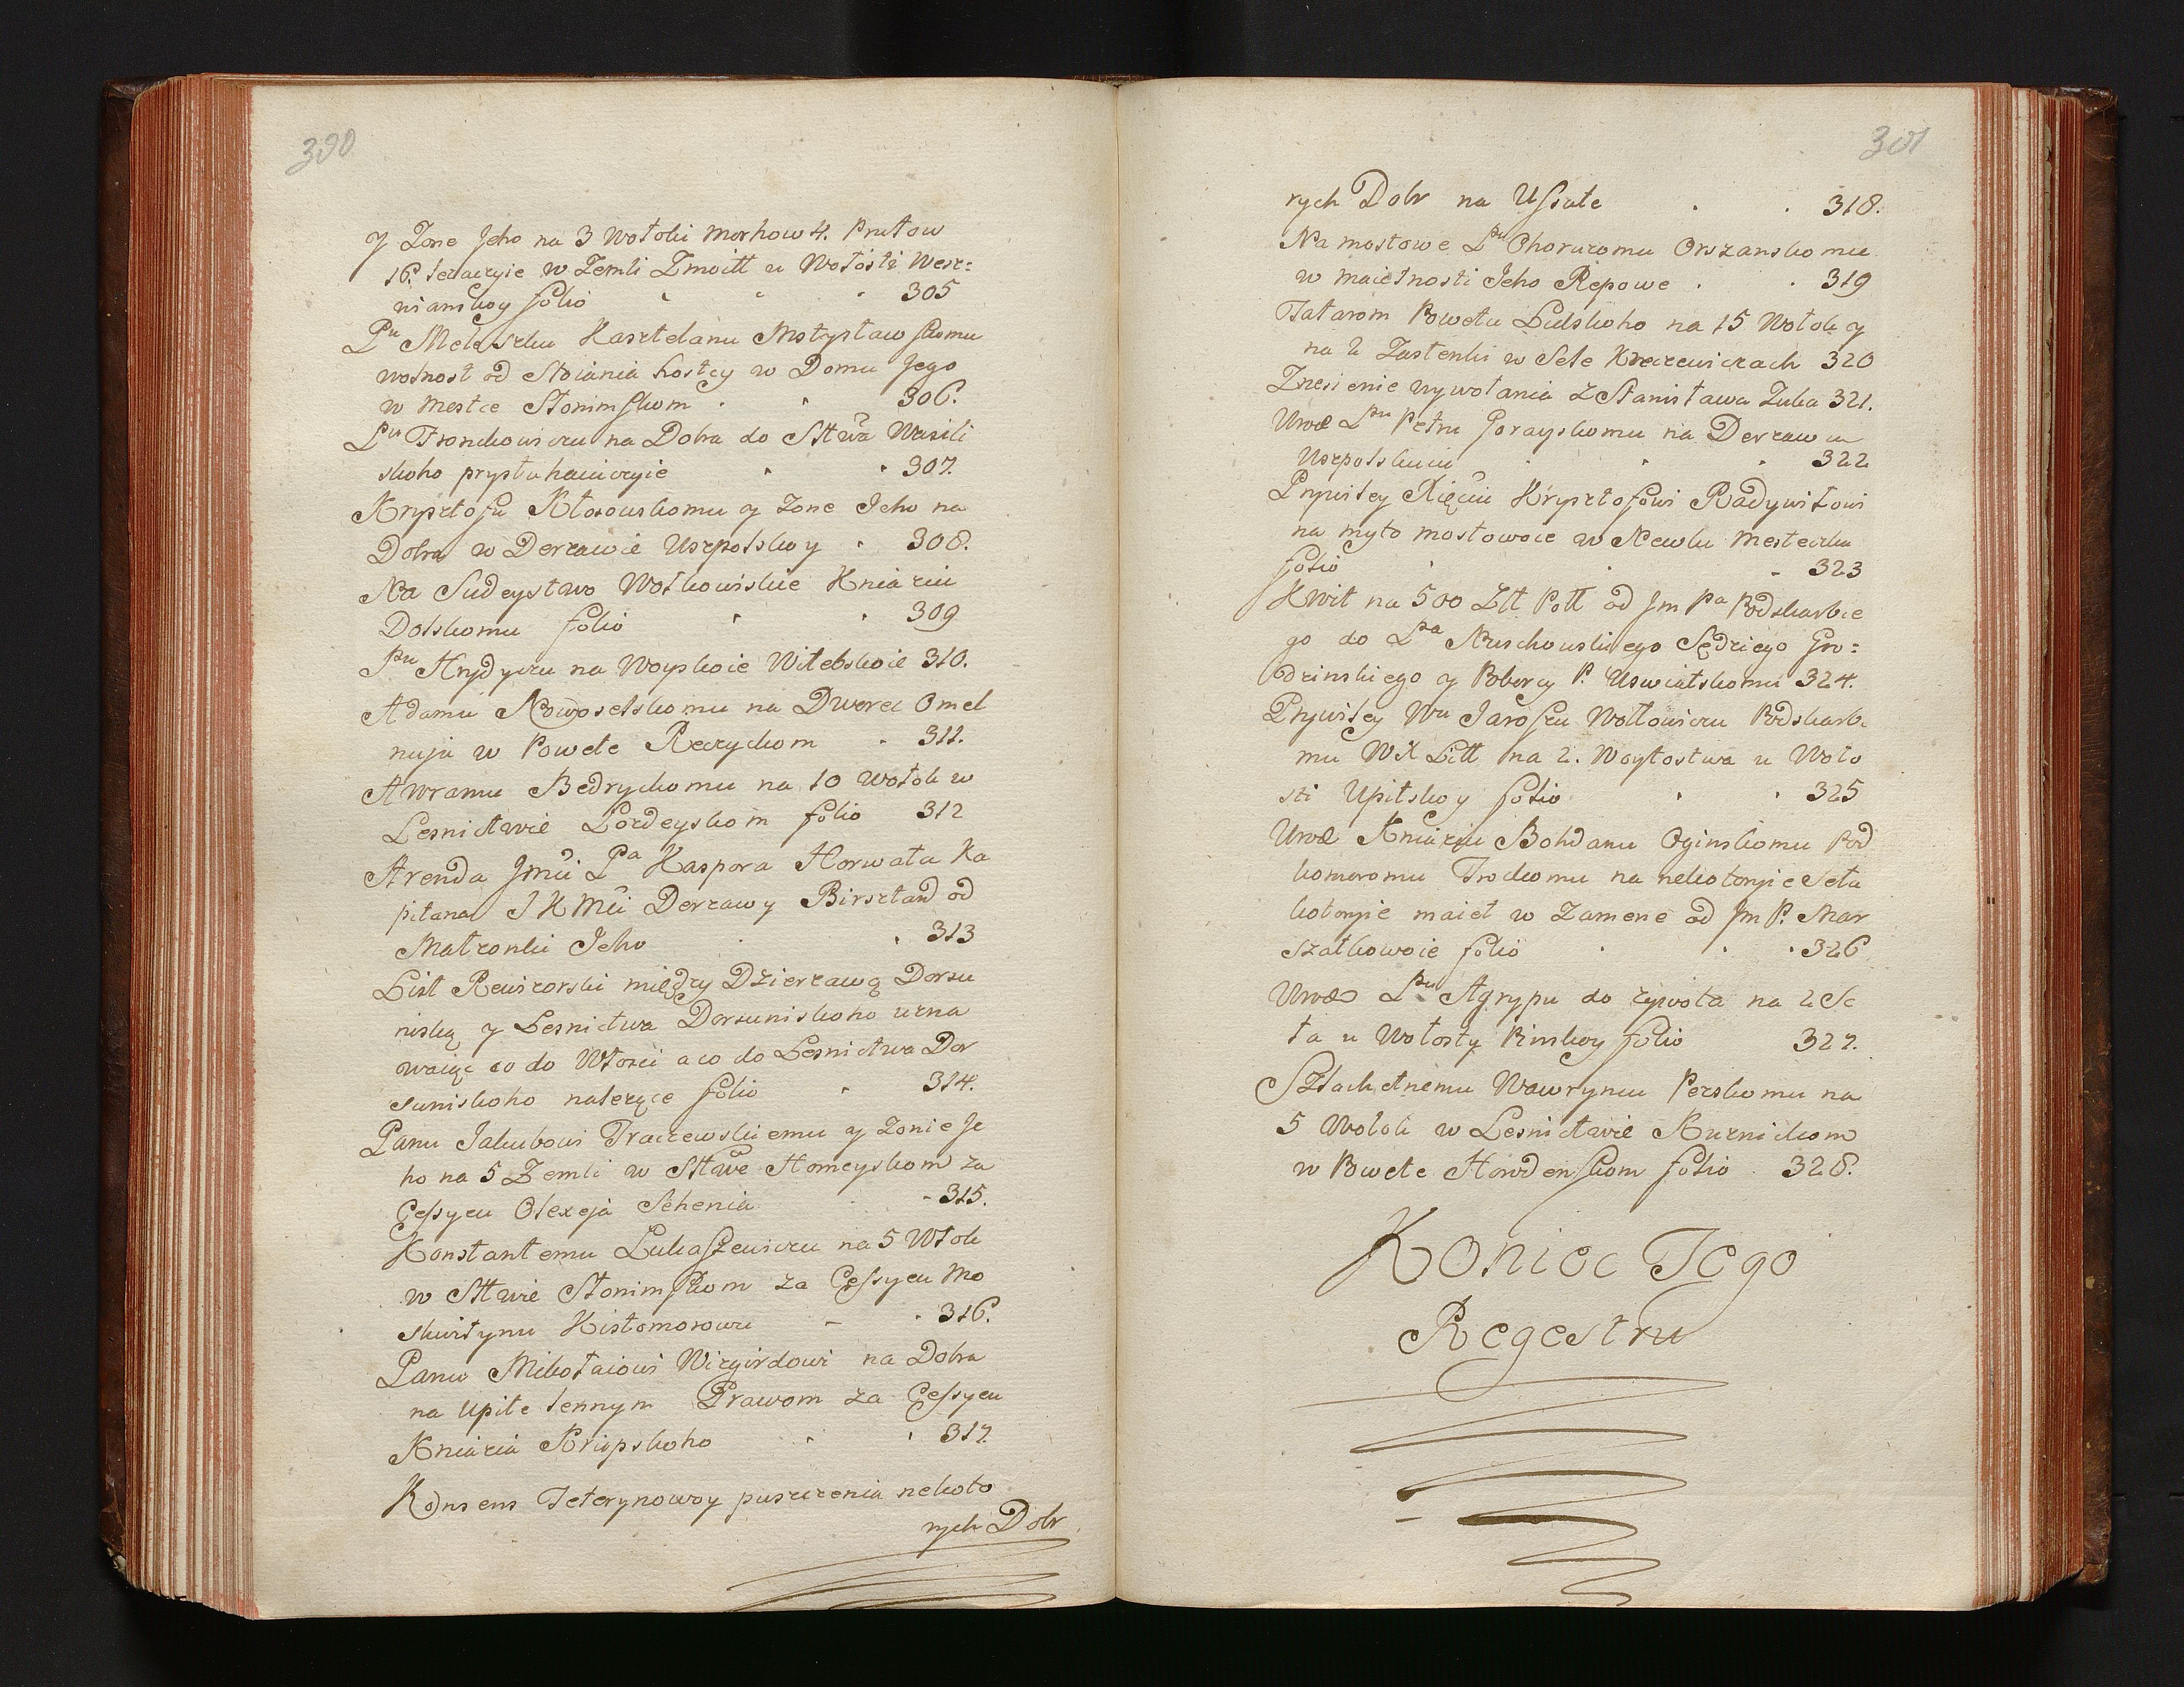 300
y Żone Jeho na 3 Wołoki Morhow 4. Prutow
16. leżaczyie w Zemli Żmoitt u Wołosti Wesz=
wianskoy folio 305
Pu Meleszku Kasztelanu Mstysławskomu
wolnost od Stoiania hostey w Domu Jego
w Mestce Słonimskom 306.
Pu Fronckowiczu na Dobra do Sttwa Wasili
skoho prysłuhaiuczyie 307.
Krysztofu Kłosowskomu y Żone Jeho na
Dobra w Derżawie Uszpolskoy 308.
Na Sudeystwo Wołkowiskie Kniaziu
Dolskomu folio 309
Pu Hrydyczu na Woyskoie Witebskoie 310.
Adamu Nowoselskomu na Dworec Omel
nuju w Powete Reczyckom 311.
Awramu Bedryckomu na 10 Wołok w
Lesnictwie Łozdeyskom folio 312
Arenda Jmći Pa Kaspora Horwata Ka
pitana J K Mći Derżawy Birsztan od
Małżonki Jeho 313
List Rewizorski między Dzierżawą Dorsu
niską y Lesnictwa Dorsuniskoho uzna
waiąc co do Włosci a co do Lesnictwa Dor
suniskoho należące folio 314.
Panu Jakubowi Traczewskiemu y Żonie Je
ho na 5 Zemli w Sttwe Homeyskom za
Cessyeu Olexeja Sehenia 315.
Konstantemu Łukaszewiczu na 5 Włok
w Sttwie Słonimskom za Cessyeu Mo
skwitynu Histomorowu 316.
Panu Mikołaiowi Wizgirdowi na Dobra
na Upite lennym Prawom za Cessyeu
Kniazia Kropskoho 317.
Konsens Teterynowoy puszczenia nekoto
rych Dobr
301
rych Dobr na Ussule 318.
Na mostowe Pu Chorużomu Orszanskomu
w maiętnosti Jeho Repowe 319
Tatarom Powetu Lidskoho na 15 Wołok y
na 2 Zastenki w Sele Kreczewiczach 320
Zniesienie wywołania z Stanisława Zuba 321.
Uwol Pu Petru Gorayskomu na Derżawu
Uszpolskuiu 322
Prywiley Xięciu Krysztofowi Radywiłowi
na myto mostowoie w Newlu Mesteczku
folio 323
Kwit na 500 Złt Poll od Jm Pa Podskarbie
go do Pa Kruschowskiego Sędziego Gro=
dzinskiego y Poborcy P. Uswiatskomu 324.
Prywiley Wu Jaroszu Wołłowiczu Podskarb.
mu WX Litt na 2. Woytostwa u Woło
sti Upitskoy folio 325
Uwol Kniaziu Bohdanu Oginskomu Pod
komoromu Trockomu na nekotoryie Seła
kotoryie maiet w Zamene od Jm P. Mar
szałkowoie folio 326
Uwol Pu Agrypu do żywota na 2 Se
ła u Wołosty Pinskoy folio 327.
Szlachetnemu Wawryncu Perskomu na
5 Wołok w Lesnictwie Kuznickom
w Powete Horodenskom folio 328.
Koniec Tego
Regestru